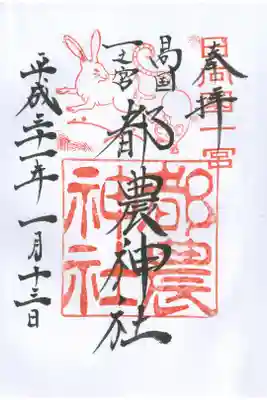 奉拝
日向国一宮
日向国
一之宮
都農神社
都農神社
平成三十一年一月十三日